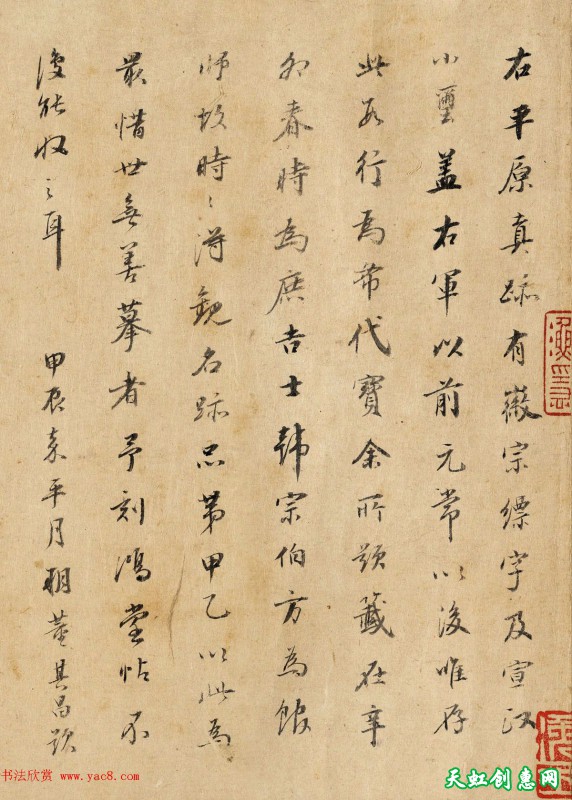 右平原真跡有徽宗縹字及宣政
小璽蓋右軍以前元常以後唯存
此數行為希代寶余所題籤在辛
卯春時為庶吉士韓宗伯方為館
師故時〻得觀名跡品第甲乙以此為
最惜世無善摹者予刻鴻堂帖不
復能收之耳 甲辰嘉平月朔董其昌題
书法欣赏 www.yac8.com
天虹创惠网